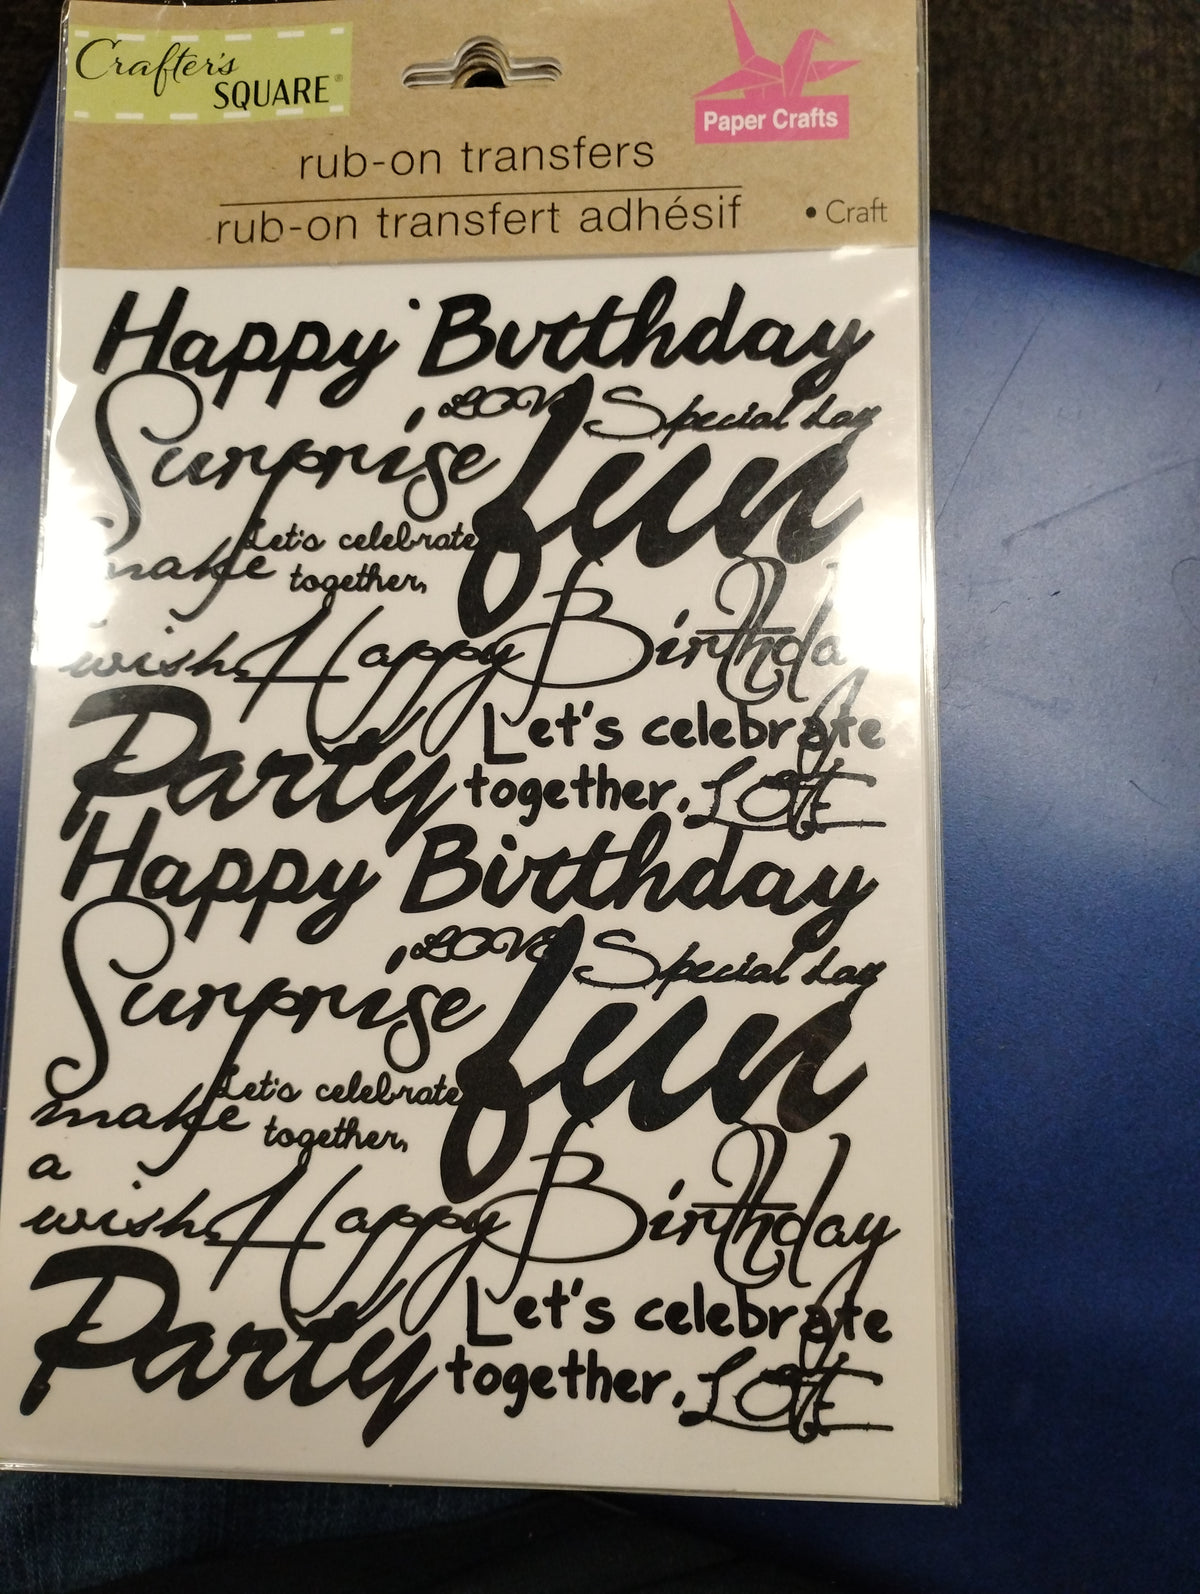 Crafter's
SQUARE®
Paper Crafts
rub-on transfers
rub-on transfert adhésif
• Craft
Happy Birthday
LOVE Special day
Surprise fun
Let's celebrate
make together,
wish Happy Birthday
Party Let's celebrate
together. LOVE
Happy Birthday
LOVE Special day
Surprise fun
Let's celebrate
make together,
a
wish Happy Birthday
Party Let's celebrate
together. LOVE